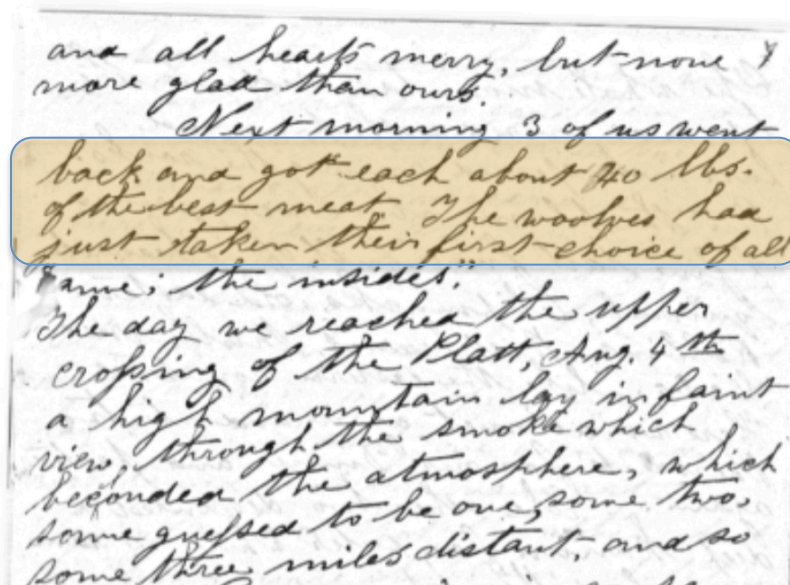 and all hearts merry, but none
more glad than ours.
Next morning 3 of us went
back and got each about 40 lbs.
of the best meat. The woolves had
just taken their first choice of all
the insides."
The day we reached the upper
crossing of the Platt, Aug. 4th
a high mountain lay in faint
view, through the smoke which
the atmosphere, which
some guessed to be one, some two,
some three miles distant, and so